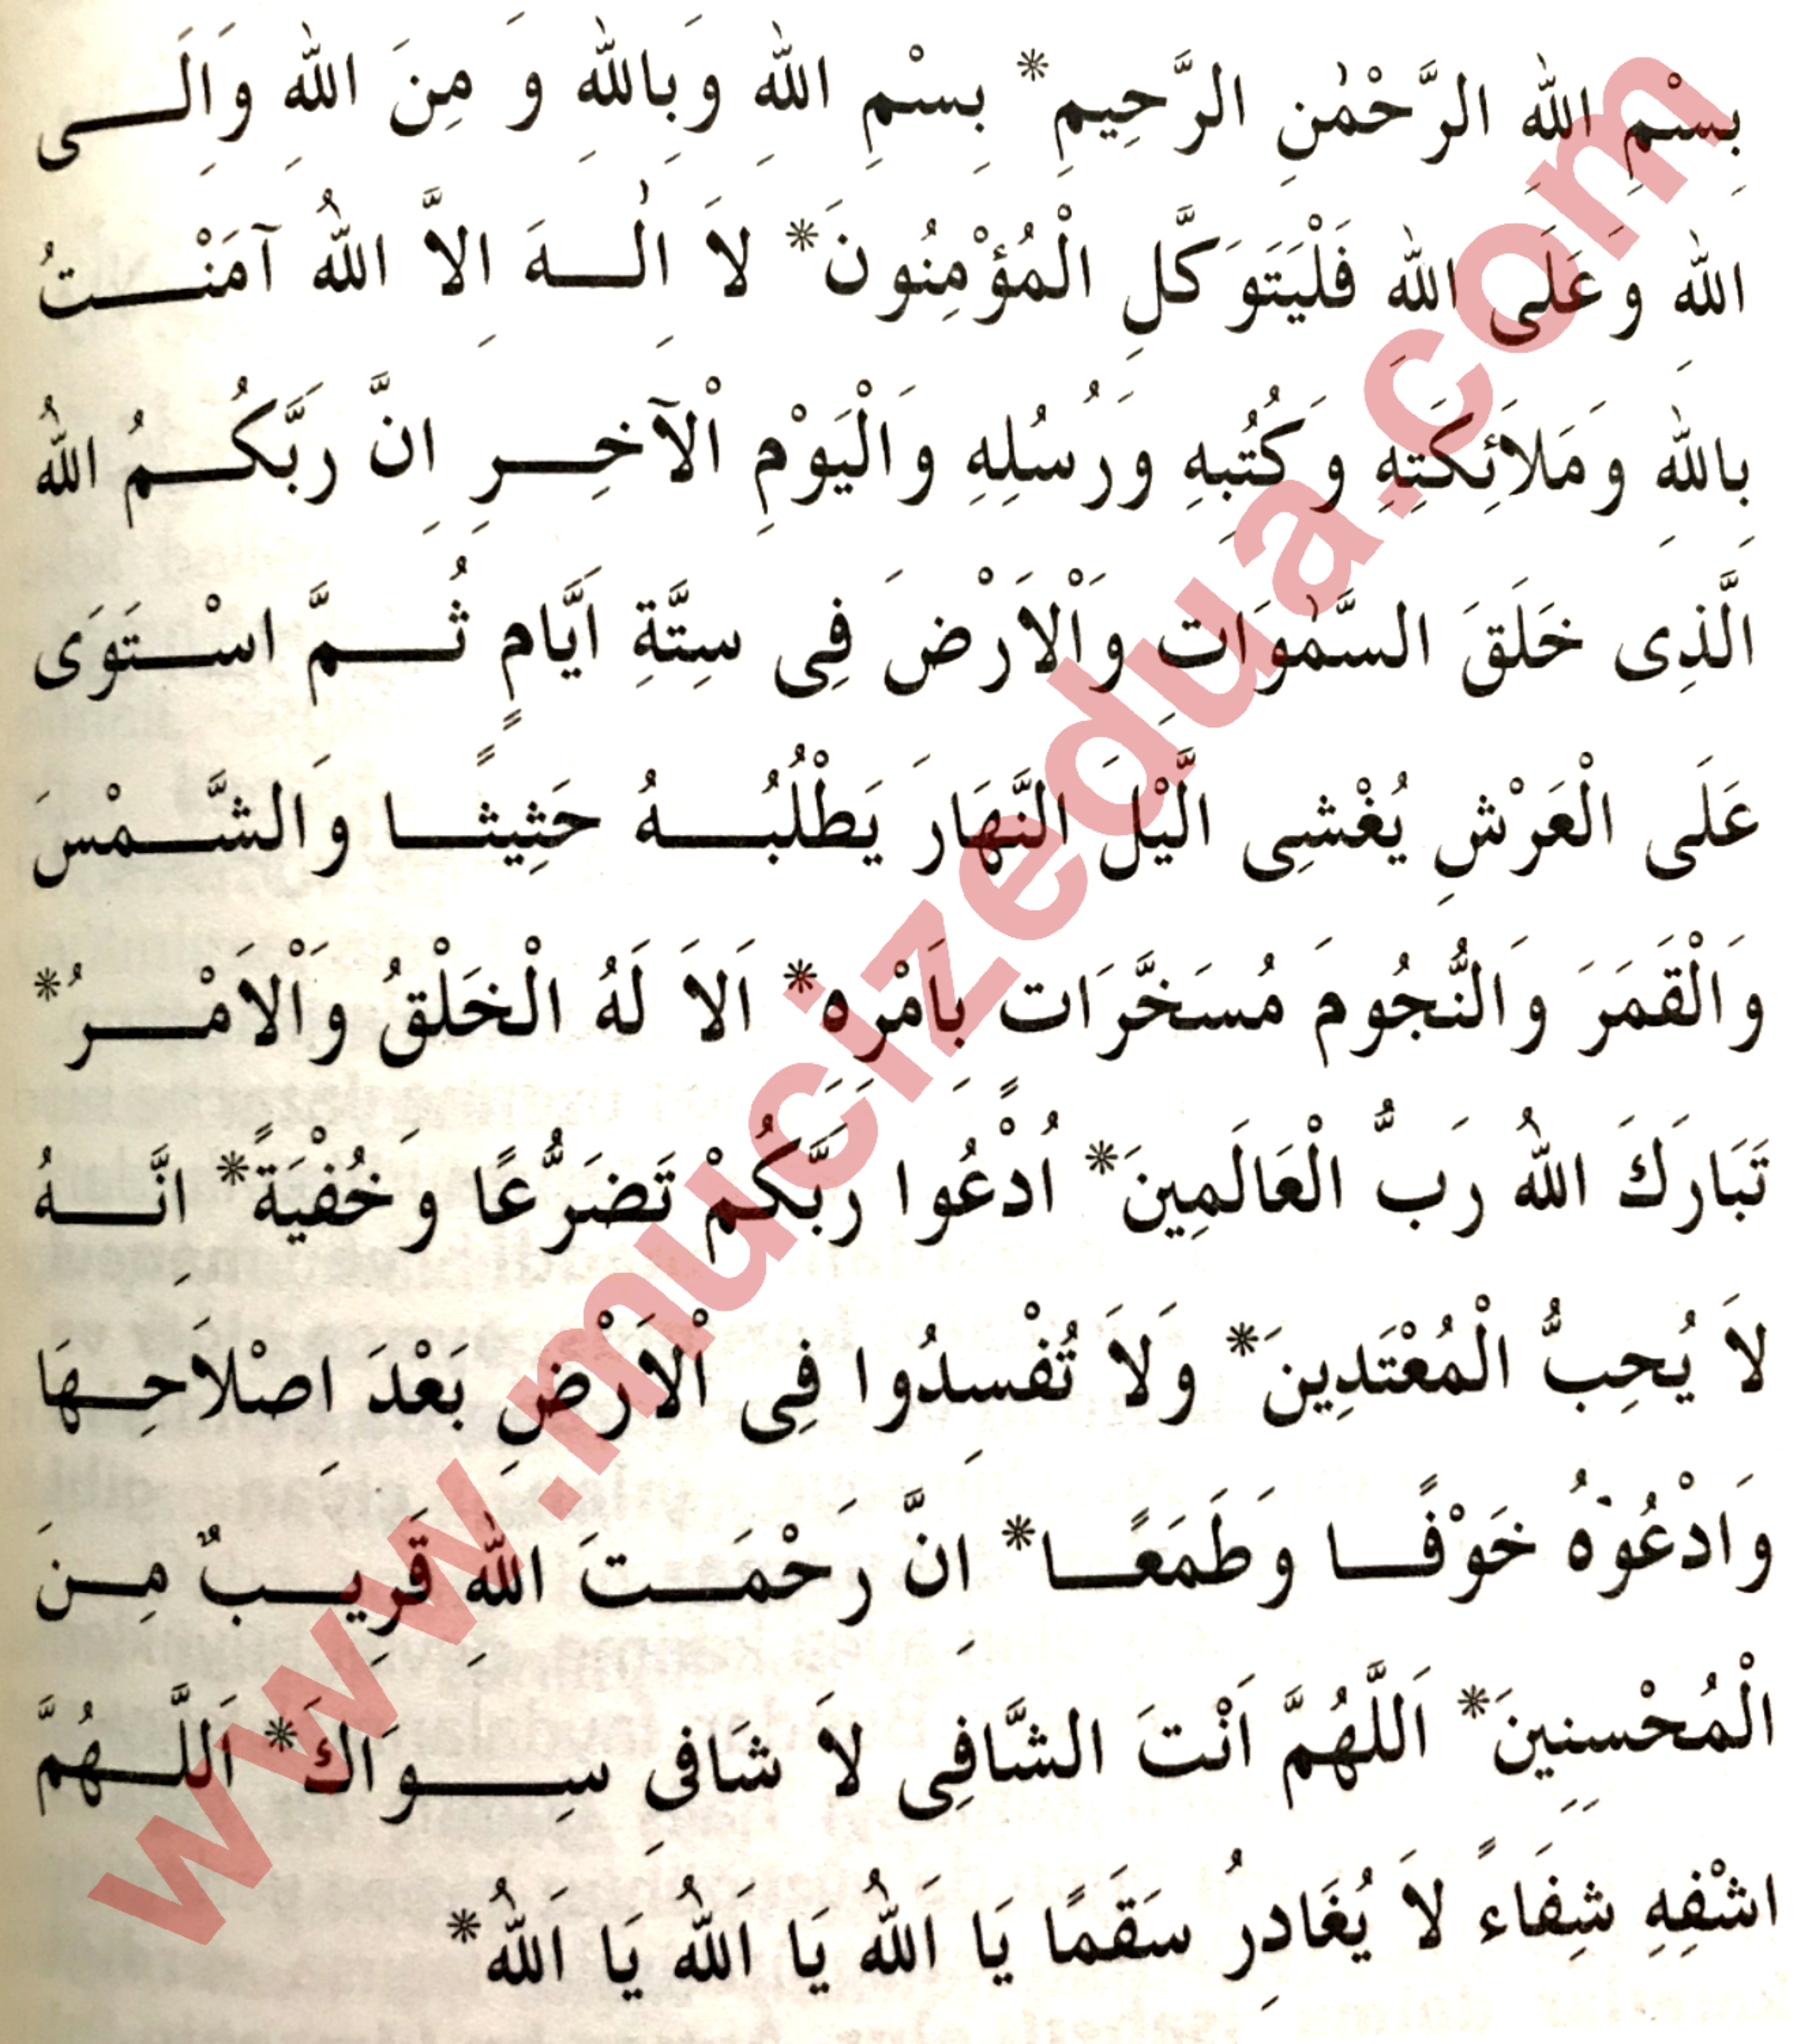 بِسْمِ اللهِ الرَّحْمٰنِ الرَّحِيمِ * بِسْمِ اللهِ وَبِاللهِ وَ مِنَ اللهِ وَاِلَى
اللهِ وَعَلَى اللهِ فَلْيَتَوَكَّلِ الْمُؤْمِنُونَ * لاَ اِلٰهَ اِلاَّ اللهُ آمَنْتُ
بِاللهِ وَمَلاَئِكَتِهِ وَكُتُبِهِ وَرُسُلِهِ وَالْيَوْمِ الْآخِرِ اِنَّ رَبَّكُمُ اللهُ
الَّذِى خَلَقَ السَّمٰوَاتِ وَاْلاَرْضَ فِى سِتَّةِ اَيَّامٍ ثُمَّ اسْتَوَى
عَلَى الْعَرْشِ يُغْشِى الَّيْلَ النَّهَارَ يَطْلُبُهُ حَثِيثًا وَالشَّمْسَ
وَالْقَمَرَ وَالنُّجُومَ مُسَخَّرَاتٍ بِاَمْرِهِ * اَلاَ لَهُ الْخَلْقُ وَاْلاَمْرُ *
تَبَارَكَ اللهُ رَبُّ الْعَالَمِينَ * اُدْعُوا رَبَّكُمْ تَضَرُّعًا وَخُفْيَةً * اِنَّهُ
لاَ يُحِبُّ الْمُعْتَدِينَ * وَلاَ تُفْسِدُوا فِى اْلاَرْضِ بَعْدَ اِصْلاَحِهَا
وَادْعُوْهُ خَوْفًا وَطَمَعًا * اِنَّ رَحْمَتَ اللهِ قَرِيبٌ مِنَ
الْمُحْسِنِينَ * اَللَّهُمَّ اَنْتَ الشَّافِى لاَ شَافِىَ سِوَاكَ * اَللَّهُمَّ
اشْفِهِ شِفَاءً لاَ يُغَادِرُ سَقَمًا يَا اَللهُ يَا اَللهُ يَا اَللهُ *
www.mucizedua.com